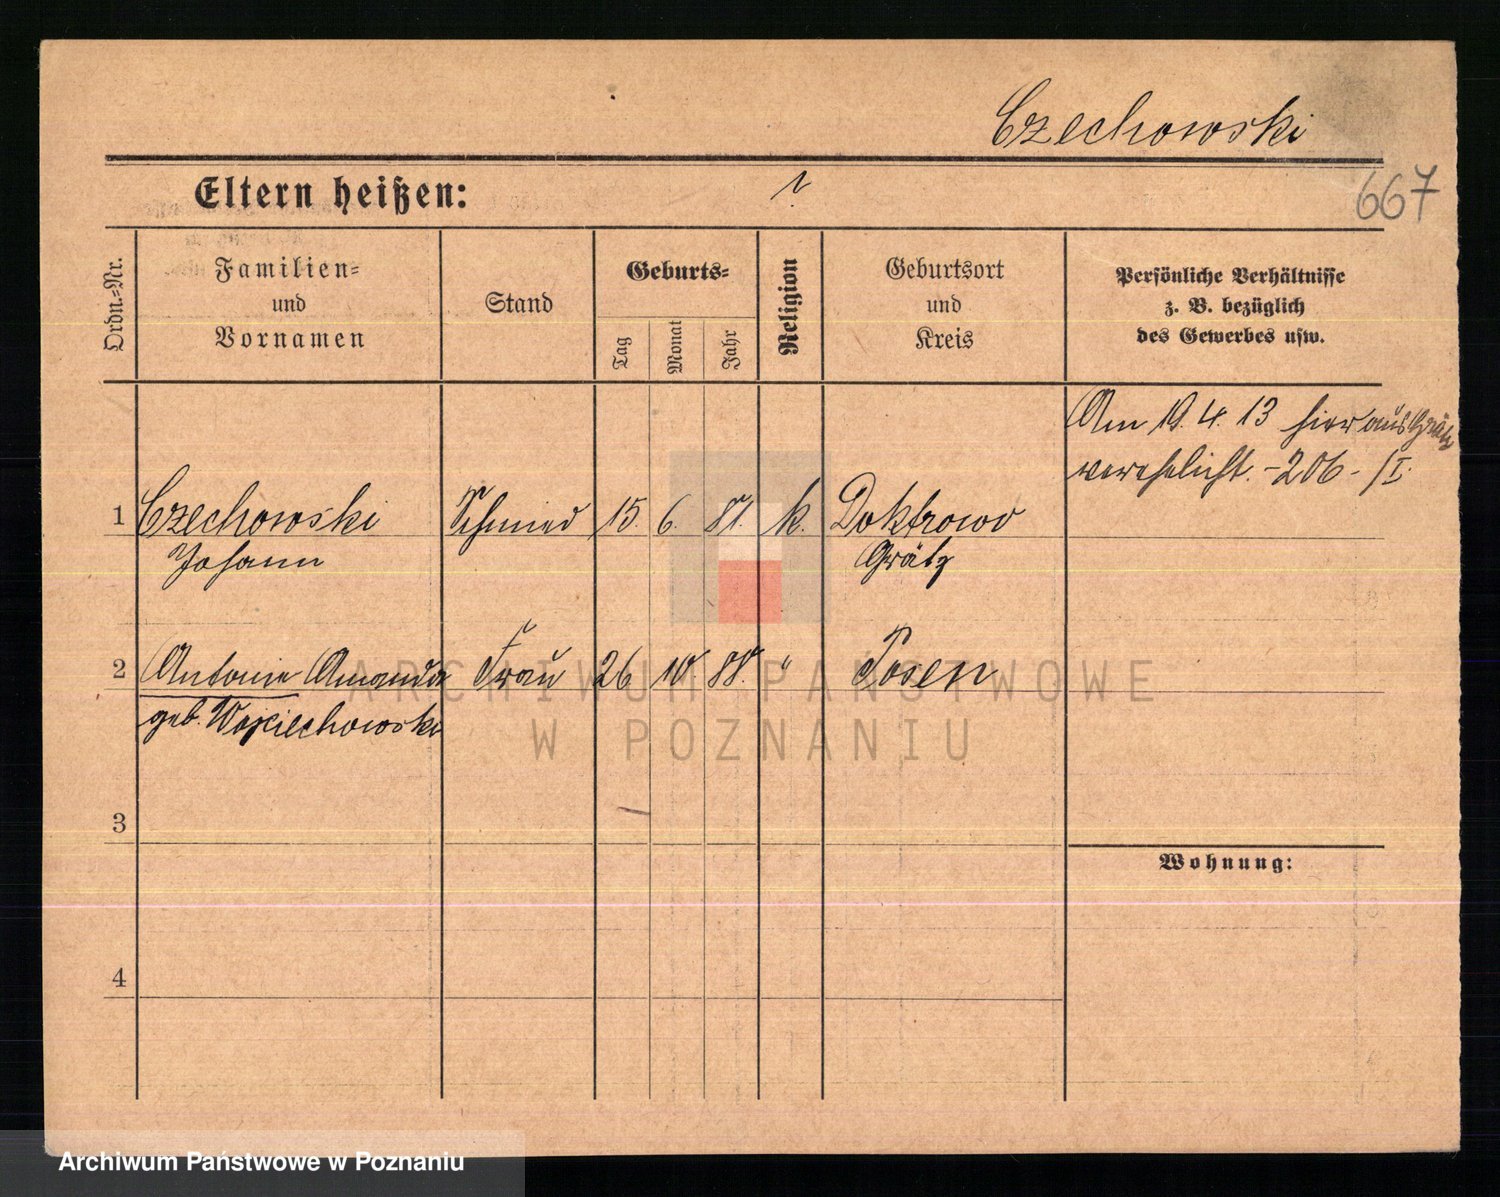 Czechowski
Eltern heißen: ?
667
Ordn.=Nr.
Familien=
und
Vornamen
Stand
Geburts=
Tag
Monat
Jahr
Religion
Geburtsort
und
Kreis
Persönliche Verhältnisse
z. B. bezüglich
des Gewerbes usw.
Am 19. 4. 13 hier aus Grätz
verehelicht. - 206 - /I.
1 Czechowski Schmied 15. 6. 81. k. Doktrowo
Johann Grätz
2 Antonie Amanda Frau 26 10. 88. " Posen
geb. Wojciechowski
3
Wohnung:
4
ARCHIWUM PAŃSTWOWE
W POZNANIU
Archiwum Państwowe w Poznaniu